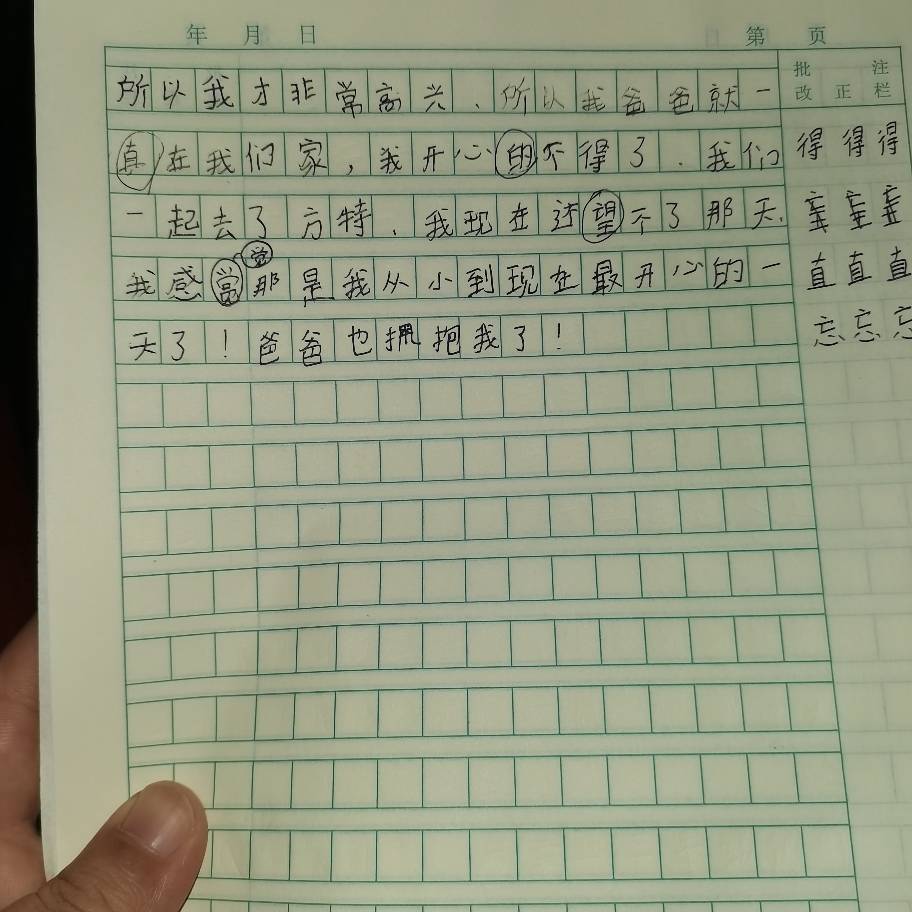 年 月 日 第 页
批改 正 注栏
所以我才非常高兴.所以我爸爸就一
直在我们家,我开心的不得了.我们
一起去了方特.我现在还望不了那天.
觉
我感当那是我从小到现在最开心的一
天了!爸爸也拥抱我了!
得得得
直直直
忘忘忘